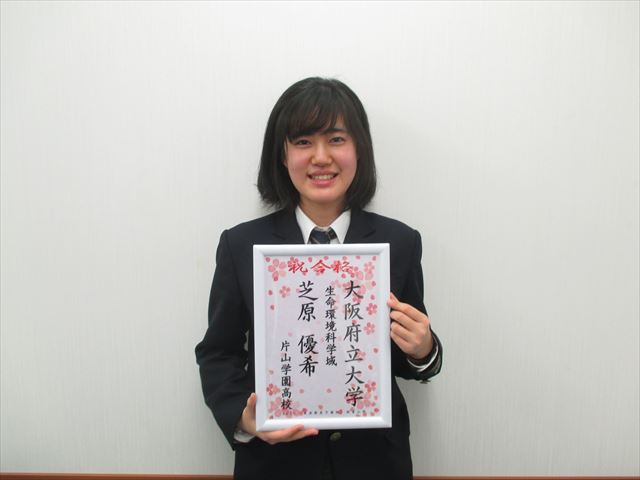 祝合格
大阪府立大学
生命環境科学域
芝原 優希
片山学園高校